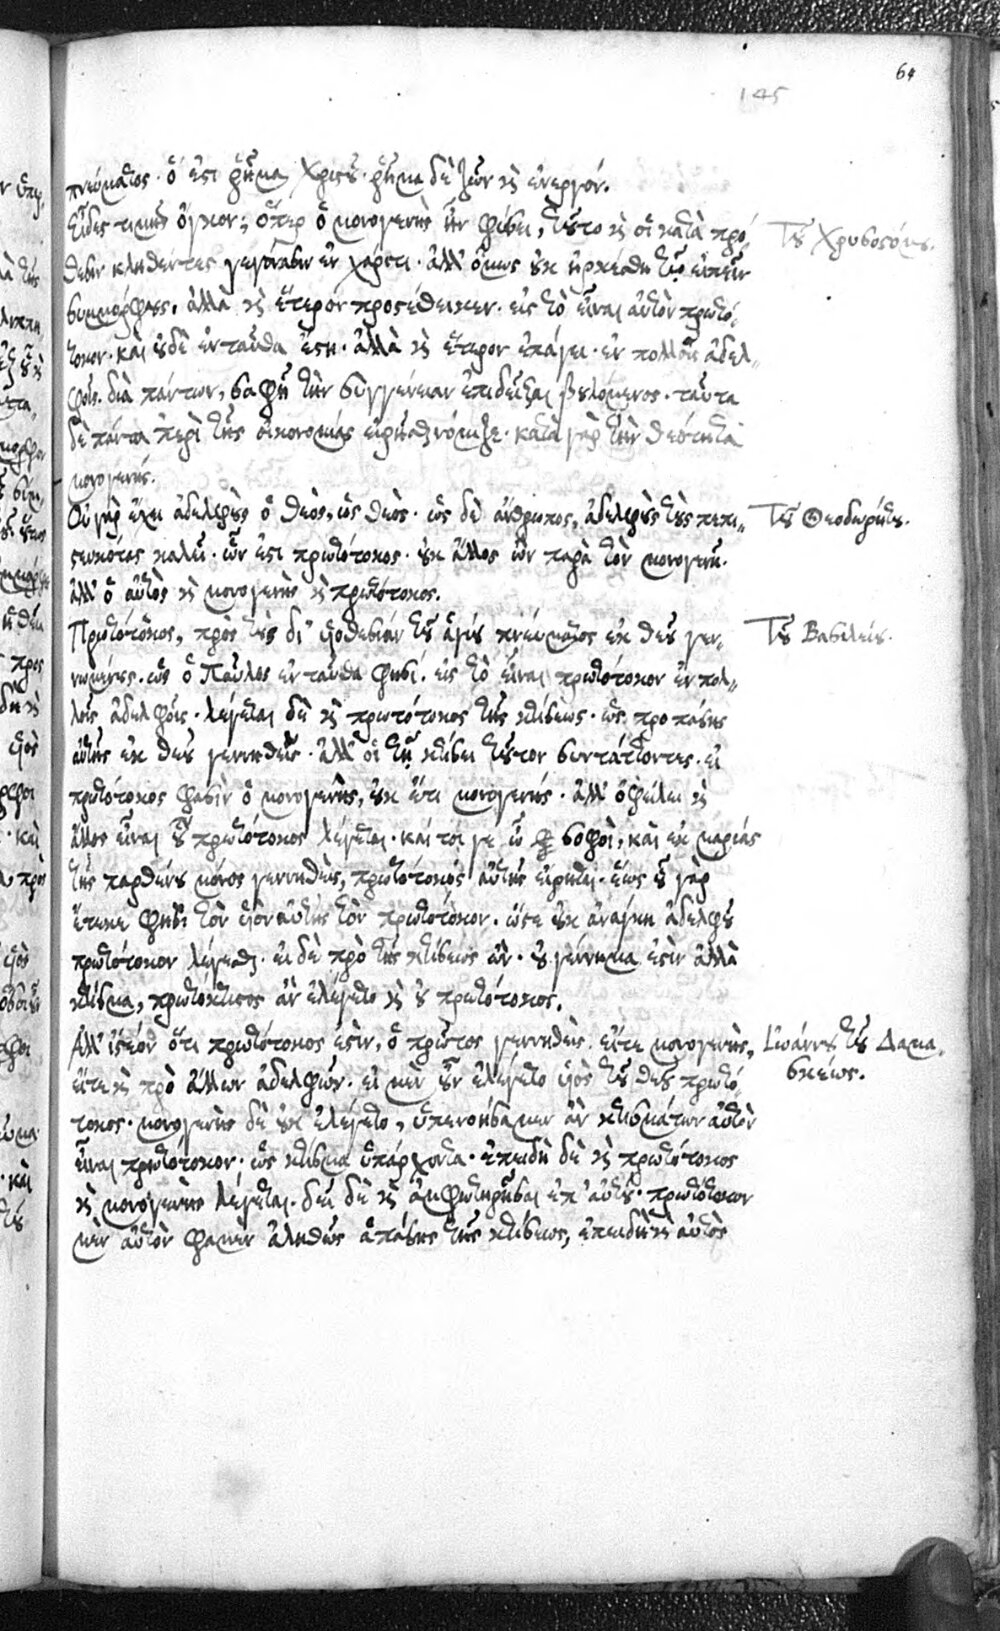 64
145
πνεύματος· ὅ ἐστι ῥῆμα Χριστοῦ· ῥῆμα δὲ ζῶν καὶ ἐνεργόν.
Εἶδες τιμῆς ὄγκον; ὅπερ ὁ μονογενὴς ἦν φύσει, τοῦτο καὶ οἱ κατὰ πρό-
Τοῦ Χρυσοστόμου.
θεσιν κληθέντες γεγόνασιν ἐν χάριτι· ἀλλ' ὅμως οὐκ ἠρκέσθη τῷ εἰπεῖν
συμμόρφους, ἀλλὰ καὶ ἕτερον προσέθεικεν· εἰς τὸ εἶναι αὐτὸν πρωτό-
τοκον· καὶ οὐδὲ ἐνταῦθα ἔστη· ἀλλὰ καὶ ἕτερον ἐπάγει· ἐν πολλοῖς ἀδελ-
φοῖς· διὰ πάντων, σαφῆ τὴν συγγένειαν ἐπιδεῖξαι βουλόμενος· ταῦτα
δὲ πάντα περὶ τῆς οἰκονομίας εἰρῆσθαι νόμιζε· κατὰ γὰρ τὴν θεότητα
μονογενής.
Οὐ γὰρ ἔχει ἀδελφοὺς ὁ θεὸς, ὡς θεός· ὡς δὲ ἄνθρωπος, ἀδελφοὺς τοὺς πεπι-
Τοῦ Θεοδωρήτου.
στευκότας καλεῖ· ὧν ἐστι πρωτότοκος· οὐκ ἄλλος ὢν παρὰ τὸν μονογενῆ·
ἀλλ' ὁ αὐτὸς καὶ μονογενὴς καὶ πρωτότοκος.
Πρωτότοκος, πρὸς τοὺς δι' υἱοθεσίαν τοῦ ἁγίου πνεύματος ἐκ θεοῦ γεν-
Τοῦ Βασιλείου.
νωμένους· ὡς ὁ Παῦλος ἐνταῦθα φησί· εἰς τὸ εἶναι πρωτότοκον ἐν πολ-
λοῖς ἀδελφοῖς· λέγεται δὲ καὶ πρωτότοκος τῆς κτίσεως· ὡς προ πάσης
αὐτῆς ἐκ θεοῦ γεννηθείς· ἀλλ' οἱ τῇ κτίσει τοῦτον συντάττοντες· εἰ
πρωτότοκος φασὶν ὁ μονογενὴς, οὐκ ἔτι μονογενής· ἀλλ' ὀφείλει καὶ
ἄλλος εἶναι οὗ πρωτότοκος λέγεται· καί τοι γε ὦ σοφοὶ, καὶ ἐκ μαρίας
τῆς παρθένου μόνος γεννηθεὶς, πρωτότοκος αὐτῆς εἴρηται· ἕως οὗ γὰρ
ἔτεκε φησὶ τὸν υἱὸν αὐτῆς τὸν πρωτότοκον· ὥστε οὐκ ἀνάγκη ἀδελφοῦ
πρωτότοκον λέγεσθαι· εἰ δὲ πρὸ τῆς κτίσεως ὢν· οὐ γέννημα ἐστὶν ἀλλὰ
κτίσμα, πρωτόκτιστος ἂν ἐλέγετο καὶ οὐ πρωτότοκος.
Ἀλλ' ἰστέον ὅτι πρωτότοκος ἐστὶν, ὁ πρῶτος γεννηθεὶς· εἴτε μονογενὴς,
Ἰωάννου τοῦ Δαμα-
σκέως.
εἴτε καὶ πρὸ ἄλλων ἀδελφῶν· εἰ μὲν οὖν ἐλέγετο υἱὸς τοῦ θεοῦ πρωτό-
τοκος· μονογενὴς δὲ οὐκ ἐλέγετο, ὑπενοήσαμεν ἂν κτισμάτων αὐτὸν
εἶναι πρωτότοκον· ὡς κτίσμα ὑπάρχοντα· ἐπειδὴ δὲ καὶ πρωτότοκος
καὶ μονογενὴς λέγεται· δεῖ δὲ καὶ ἀμφω τηρῆσαι ἐπ' αὐτοῦ· πρωτότοκον
μὲν αὐτὸν φαμὲν ἀληθῶς ἁπάσης τῆς κτίσεως, ἐπειδὴ καὶ αὐτὸς